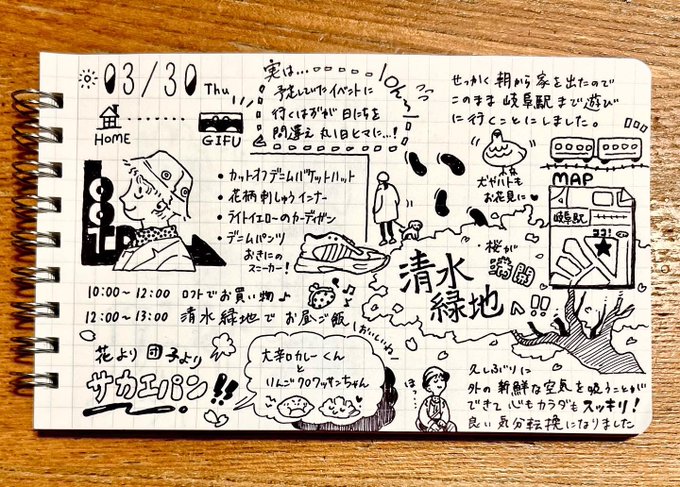 03/30 Thu
HOME
GIFU
実は…
予定していたイベントに
行くはずが 日にちを
間違え 丸1日ヒマに…!
10km
せっかく 朝から 家を出たので
このまま 岐阜駅 まで 遊び
に 行くことに しました。
OOTD
・カットオフデニムバケットハット
・花柄刺しゅうインナー
・ライトイエローのカーデガン
・デニムパンツ
おきにの
スニーカー!
犬やハトも
お花見に
MAP
岐阜駅
ココ!
桜が
満開
清水
緑地へ!!
10:00~12:00 ロフトでお買い物♪
12:00~13:00 清水緑地で お昼ご飯
花より 団子より
サカエパン!!
おいしいね
大辛口カレーくん
と
りんごクロワッサンちゃん
ほっ
久しぶりに
外の 新鮮な空気を 吸うことが
できて 心もカラダも スッキリ!
良い 気分転換になりました